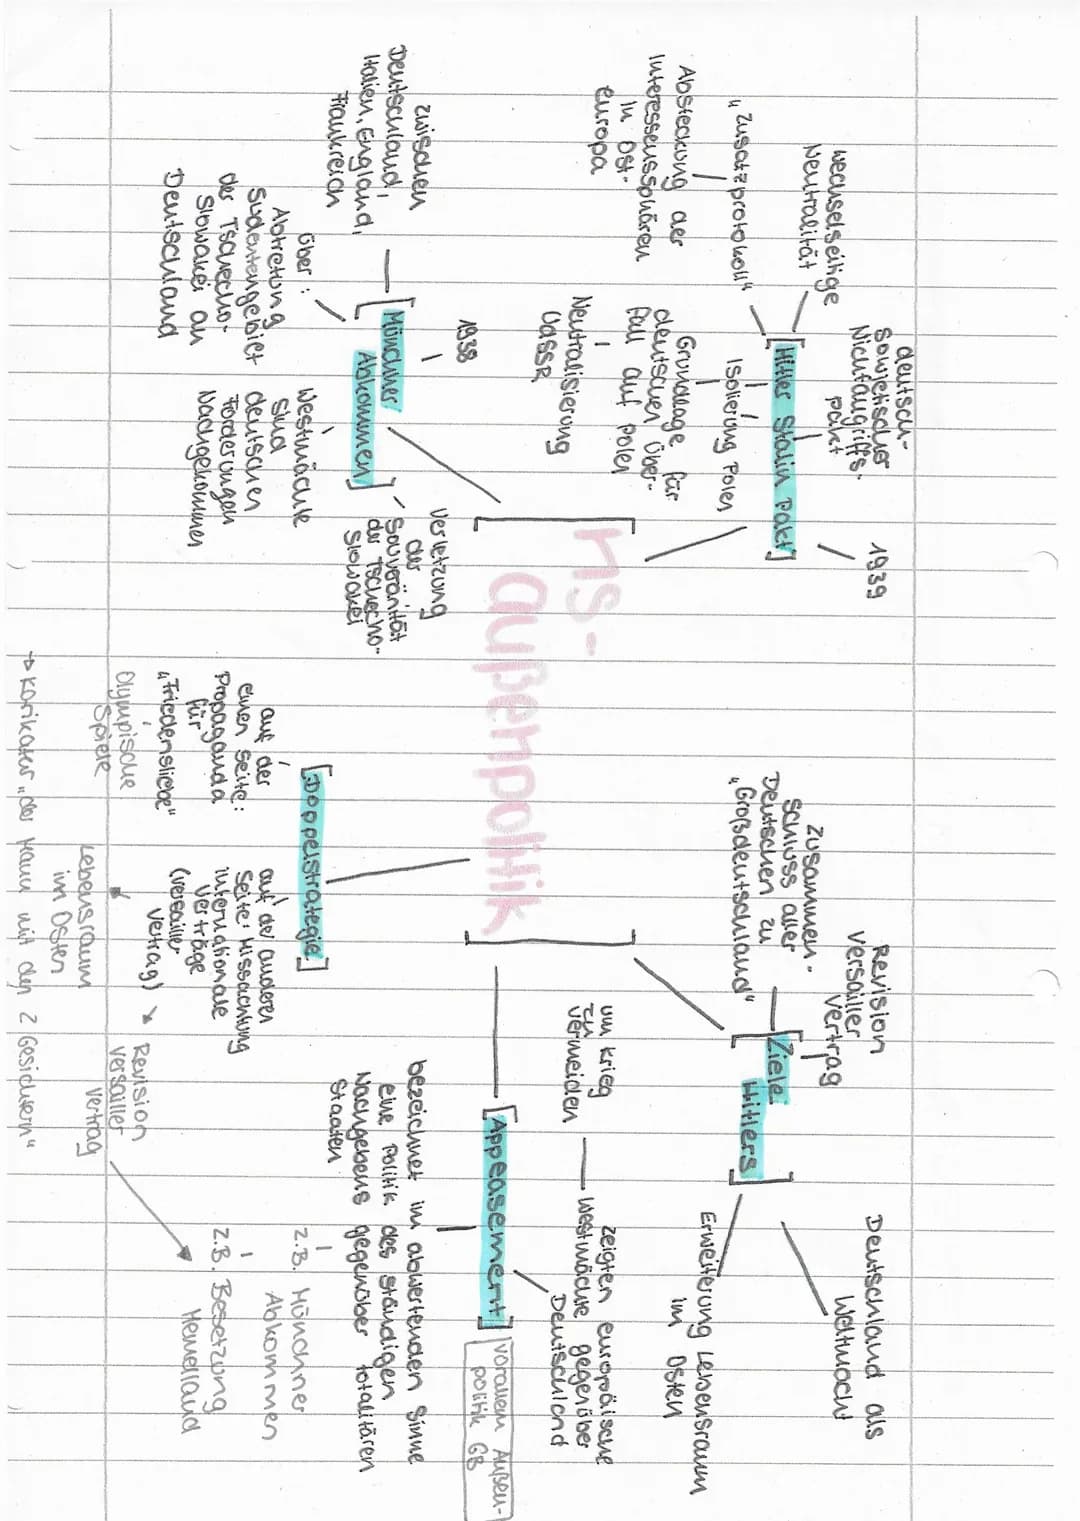 ns-
außenpolitik
[Hitler Stalin Pakt]
deutsch-
sowjetischer
Nichtangriffs-
pakt
1939
wechselseitige
Neutralität
„Zusatzprotokoll"
Absteckung der
Interessenssphären
in Ost-
europa
Isolierung Polen
Grundlage für
deutschen Über-
fall auf Polen
Neutralisierung
UdSSR
[Münchner
Abkommen]
1938
zwischen
Deutschland,
Italien, England,
Frankreich
über:
Abtretung
Sudentengebiet
der Tschecho-
Slowakei an
Deutschland
Westmächte
sind
deutschen
Forderungen
Nachgekommen
Verletzung
der
Souveränität
der Tschecho-
Slowakei
[Ziele
Hitlers]
Revision
Versailler
Vertrag
Zusammen-
schluss aller
Deutschen zu
„Großdeutschland"
Deutschland als
Weltmacht
Erweiterung Lebensraum
im Osten
[Appeasement]
vorallem Außen-
politik GB
zeigten europäische
Westmächte gegenüber
Deutschland
um Krieg
zu
vermeiden
bezeichnet im abwertenden Sinne
eine Politik des ständigen
Nachgebens gegenüber totalitären
Staaten
z.B. Münchner
Abkommen
z.B. Besetzung
Memelland
[Doppelstrategie]
auf der
einen Seite:
Propaganda
für
„Friedensliebe"
Olympische
Spiele
auf der anderen
Seite: Missachtung
internationale
Verträge
(Versailler
Vertrag)
Lebensraum
im Osten
Revision
Versailler
Vertrag
→ Karikatur „der Mann mit den 2 Gesichtern"